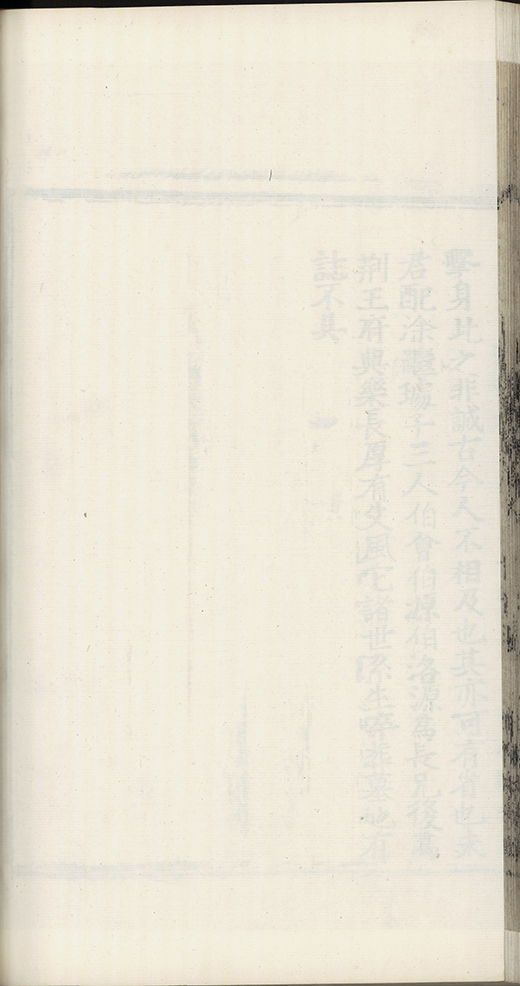 身此之非誠古今人不相及也其亦可有省也夫
君配涂繼鄔子三人伯會伯源伯洛源爲長兄後爲
荆王府典樂長厚有父風它諸世系生卒葬墓地有
誌不具